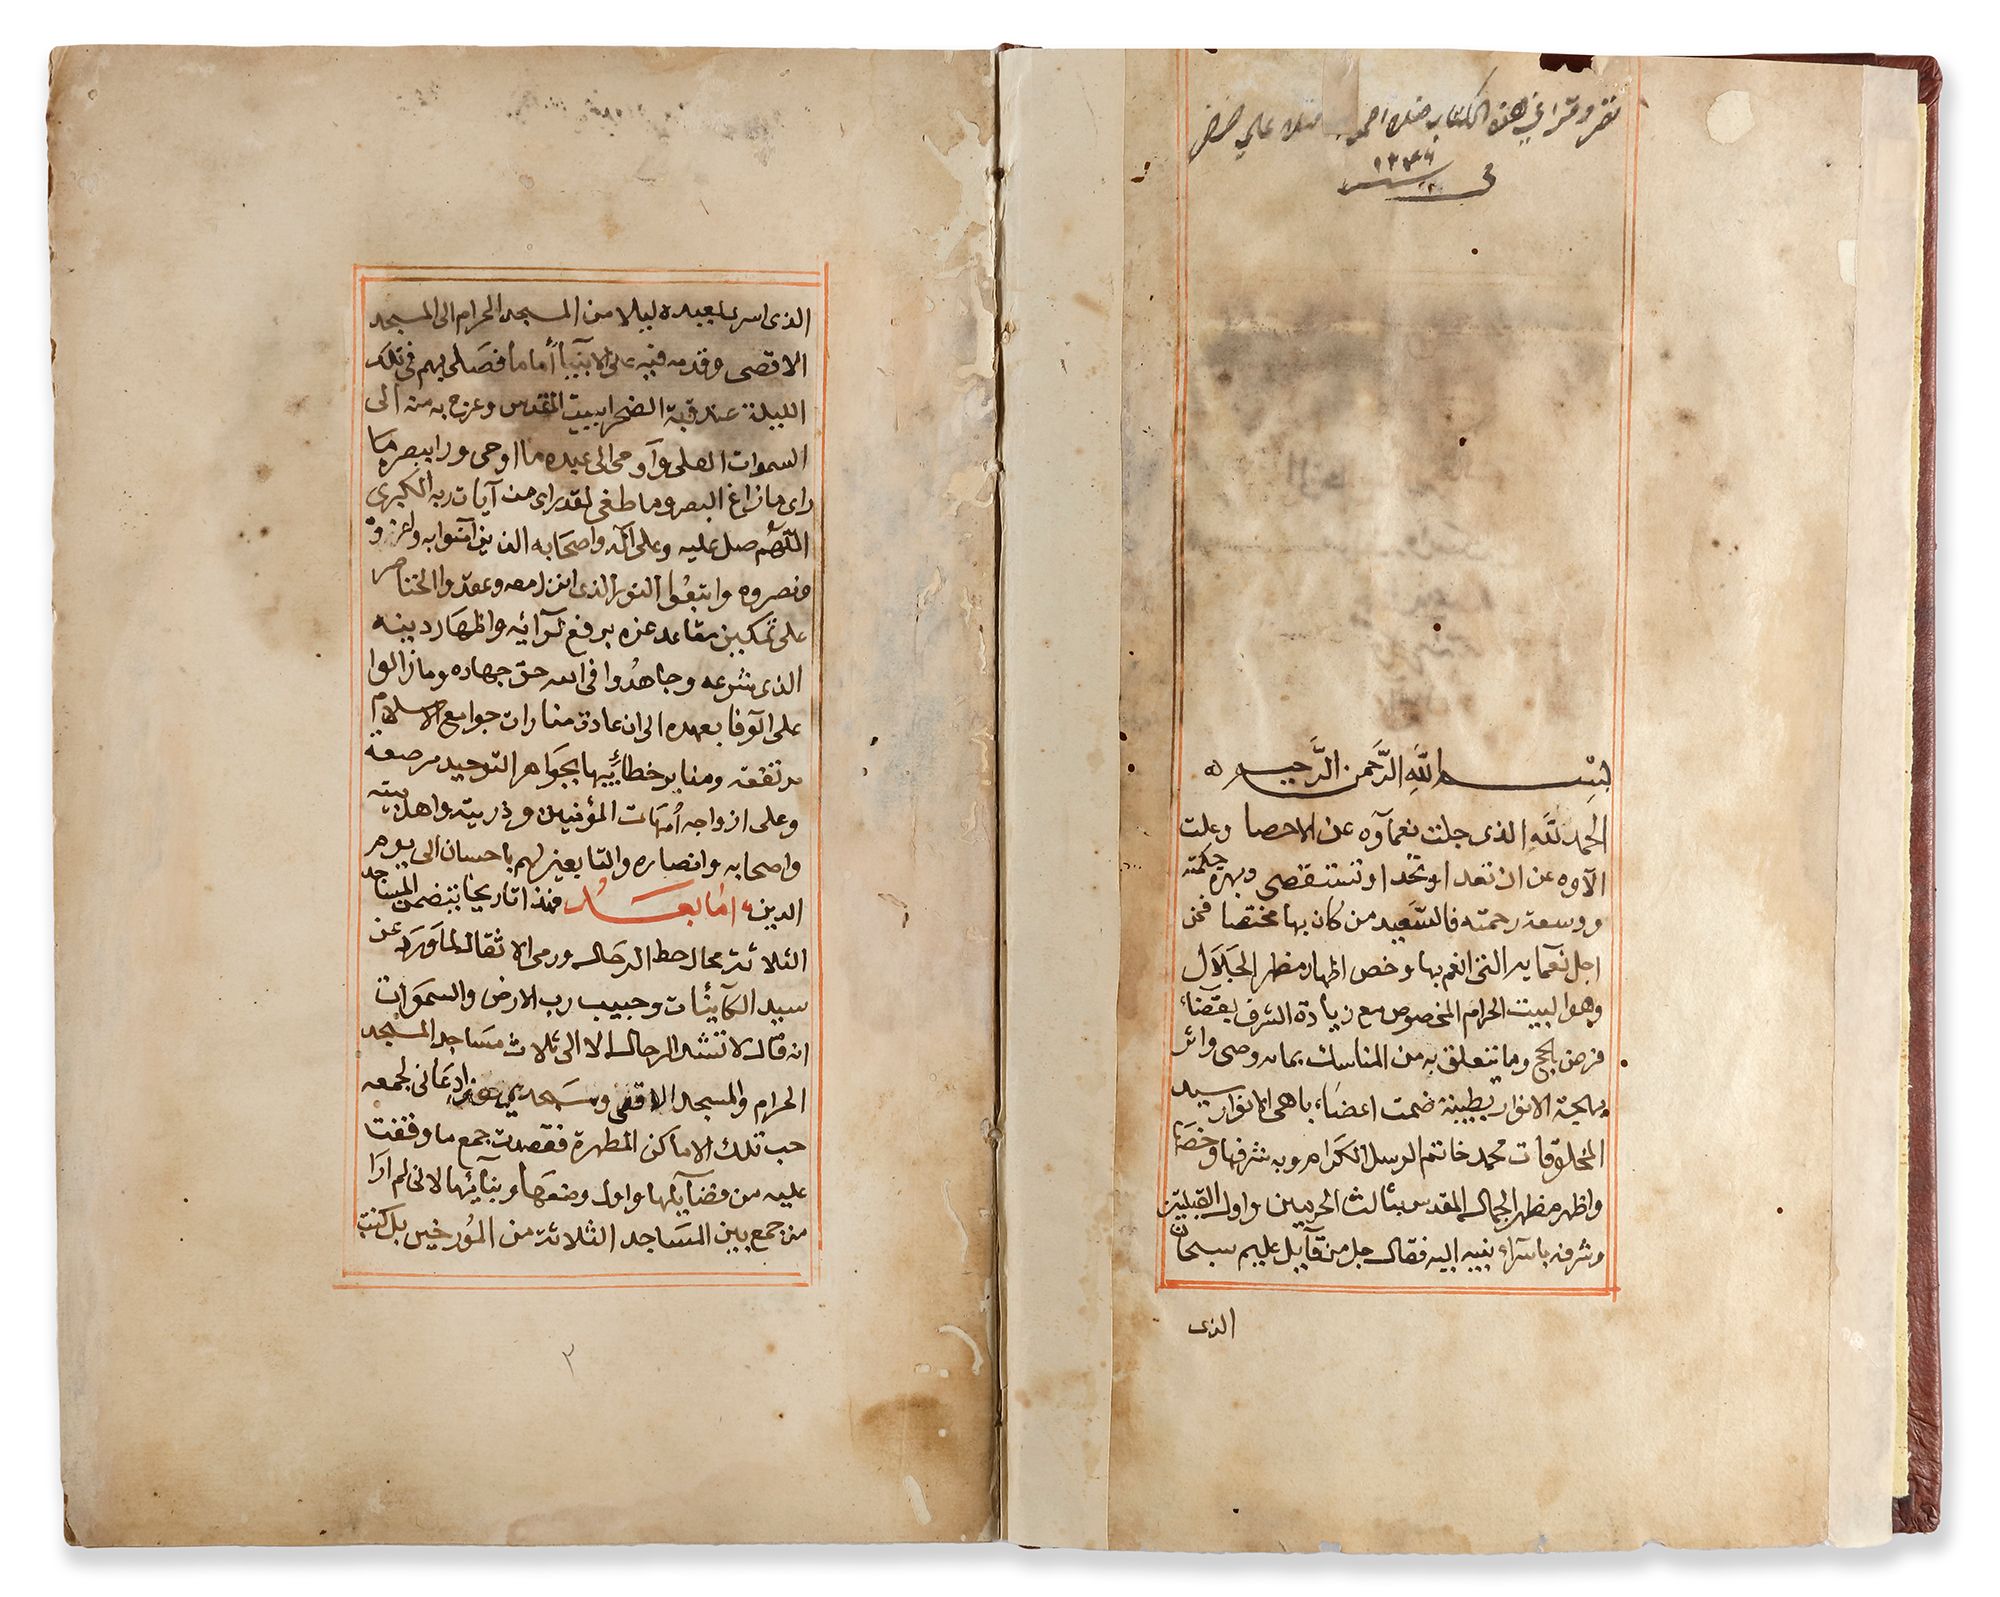 نظر وقرا في هذه الكتاب
في
١٣٣٤
بسم اللهِ الرَّحمن الرَّحيم
الحمد للَّهِ الذى جلت نعمآوه عن الاحصا وعلت
الآوه عن ان تعد او تحد او تستقصى وبهرة حكمته
ووسعت رحمته فالسَّعيد من كان بها مختصا فمن
اجل نعمايه التى انعم بها وخص اظهار مظهر الجَلَال
وهو البيت الحرام المخصوص مع زيادة الشرف بقضاء
فرض الحج وما يتعلق به من المناسك بما به وصى واثر
بهجة الانوار بطيبة ضمت اعضاء باهى الانوار سيد
المخلوقات محمد خاتم الرسل الكرام وبه شرفها وخصا
واظهر مظهر الجمال المقدس بثالث الحرمين واول القبلتين
وشرفه باسرآء نبيه اليه فقال جل من قآيل عليم سبحان
الذى
الذى اسرى بعبده ليلا من المسجد الحرام الى المسجد
الاقصى وقدمه فيه على الانبيآ أماما فصَلى بهم فى تلك
الليلة عند قبة الصخرا ببيت المقدس وعرج به منه الى
السموات العلى وَآوحى الى عبده ما اوحى وراى ببصره مَا
راى ما زاغ البصر وما طغى لقد راى من آيات ربه الكبرى
اللَّهُم صل عليه وعلى آله واصحابه الذين آمنوا به وعزروهُ
ونصروه واتبعُوا النور الذى انزل معه وعقدوا الخناصر
على تمكين مقاعد عزه برفع رآئيه واظهَار دينه
الذى شرعه وجاهدُوا فى الله حق جهاده وما زالوا
على الوفا بعهده الى ان عادة منارات جوامع الاسلام
مرتفعة ومنابر خطائيها بجوَاهر التوحيد مرصعة
وعلى ازواجه أمهَات المؤمنين وذريته واهل بيته
واصحابه وانصاره والتابعين لهم باحسان الى يوم
الدين، امّا بعَــد فهذا تاريخا يتضمن المسَاجد
الثلاثة محال حط الرحال ورمى الاثقال لما وَرَد عن
سيد الكآئنات وحبيب رب الارض والسموَات
انه قال لا تشد الرحال الا الى ثلاث مسَاجد المسجد
الحرام والمسجد الاقصى ومسجدي هذا دعانى لجمعه
حب تلك الاماكن المطهرة فقصدت جمع ما وقفت
عليه من فضآيلها واول وضعهَا وبنآئها لانى لم ارَا
من جمع بين المسَاجد الثلاثة من المؤرخين بل كنت
٢